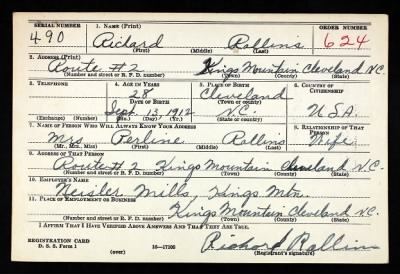 SERIAL NUMBER 1. NAME (Print) ORDER NUMBER
490 Richard Rollins 624
(First) (Middle) (Last)
2. ADDRESS (Print)
Route #2 Kings Mountain Cleveland N.C.
(Number and street or R. F. D. number) (Town) (County) (State)
3. TELEPHONE 4. AGE IN YEARS 5. PLACE OF BIRTH 6. COUNTRY OF CITIZENSHIP
28 Cleveland
DATE OF BIRTH (Town or county)
Sept. 13 1912 N.C. USA.
(Exchange) (Number) (Mo.) (Day) (Yr.) (State or country)
7. NAME OF PERSON WHO WILL ALWAYS KNOW YOUR ADDRESS 8. RELATIONSHIP OF THAT PERSON
Mrs Perline Rollins Wife
(Mr., Mrs., Miss) (First) (Middle) (Last)
9. ADDRESS OF THAT PERSON
Route #2 Kings Mountain Cleveland N.C.
(Number and street or R. F. D. number) (Town) (County) (State)
10. EMPLOYER'S NAME
Neisler Mills, Kings Mtn.
11. PLACE OF EMPLOYMENT OR BUSINESS
Kings Mountain Cleveland N.C.
(Number and street or R. F. D. number) (Town) (County) (State)
I AFFIRM THAT I HAVE VERIFIED ABOVE ANSWERS AND THAT THEY ARE TRUE.
REGISTRATION CARD
D. S. S. Form 1 (over) 16—17105 Richard Rollins
(Registrant's signature)